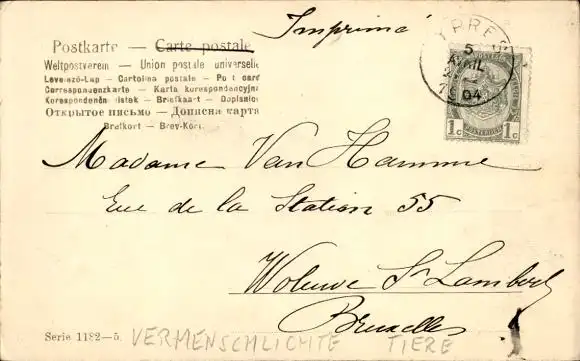 Imprimé
Postkarte — Carte postale
Weltpostverein — Union postale universelle
Levelező-Lap — Cartolina postale — Post card
Correspondenzkarte — Karta korespondencyjna
Korespondenční lístek — Briefkaart — Dopisnica
Открытое письмо — Дописна карта
Brefkort — Brev-Kort
YPRES
5
AVRIL
7
04
1c 1c
Madame Van Hamme
Rue de la Station 55
Woluwe St Lambert
Bruxelles
Serie 1182—5. VERMENSCHLICHTE TIERE